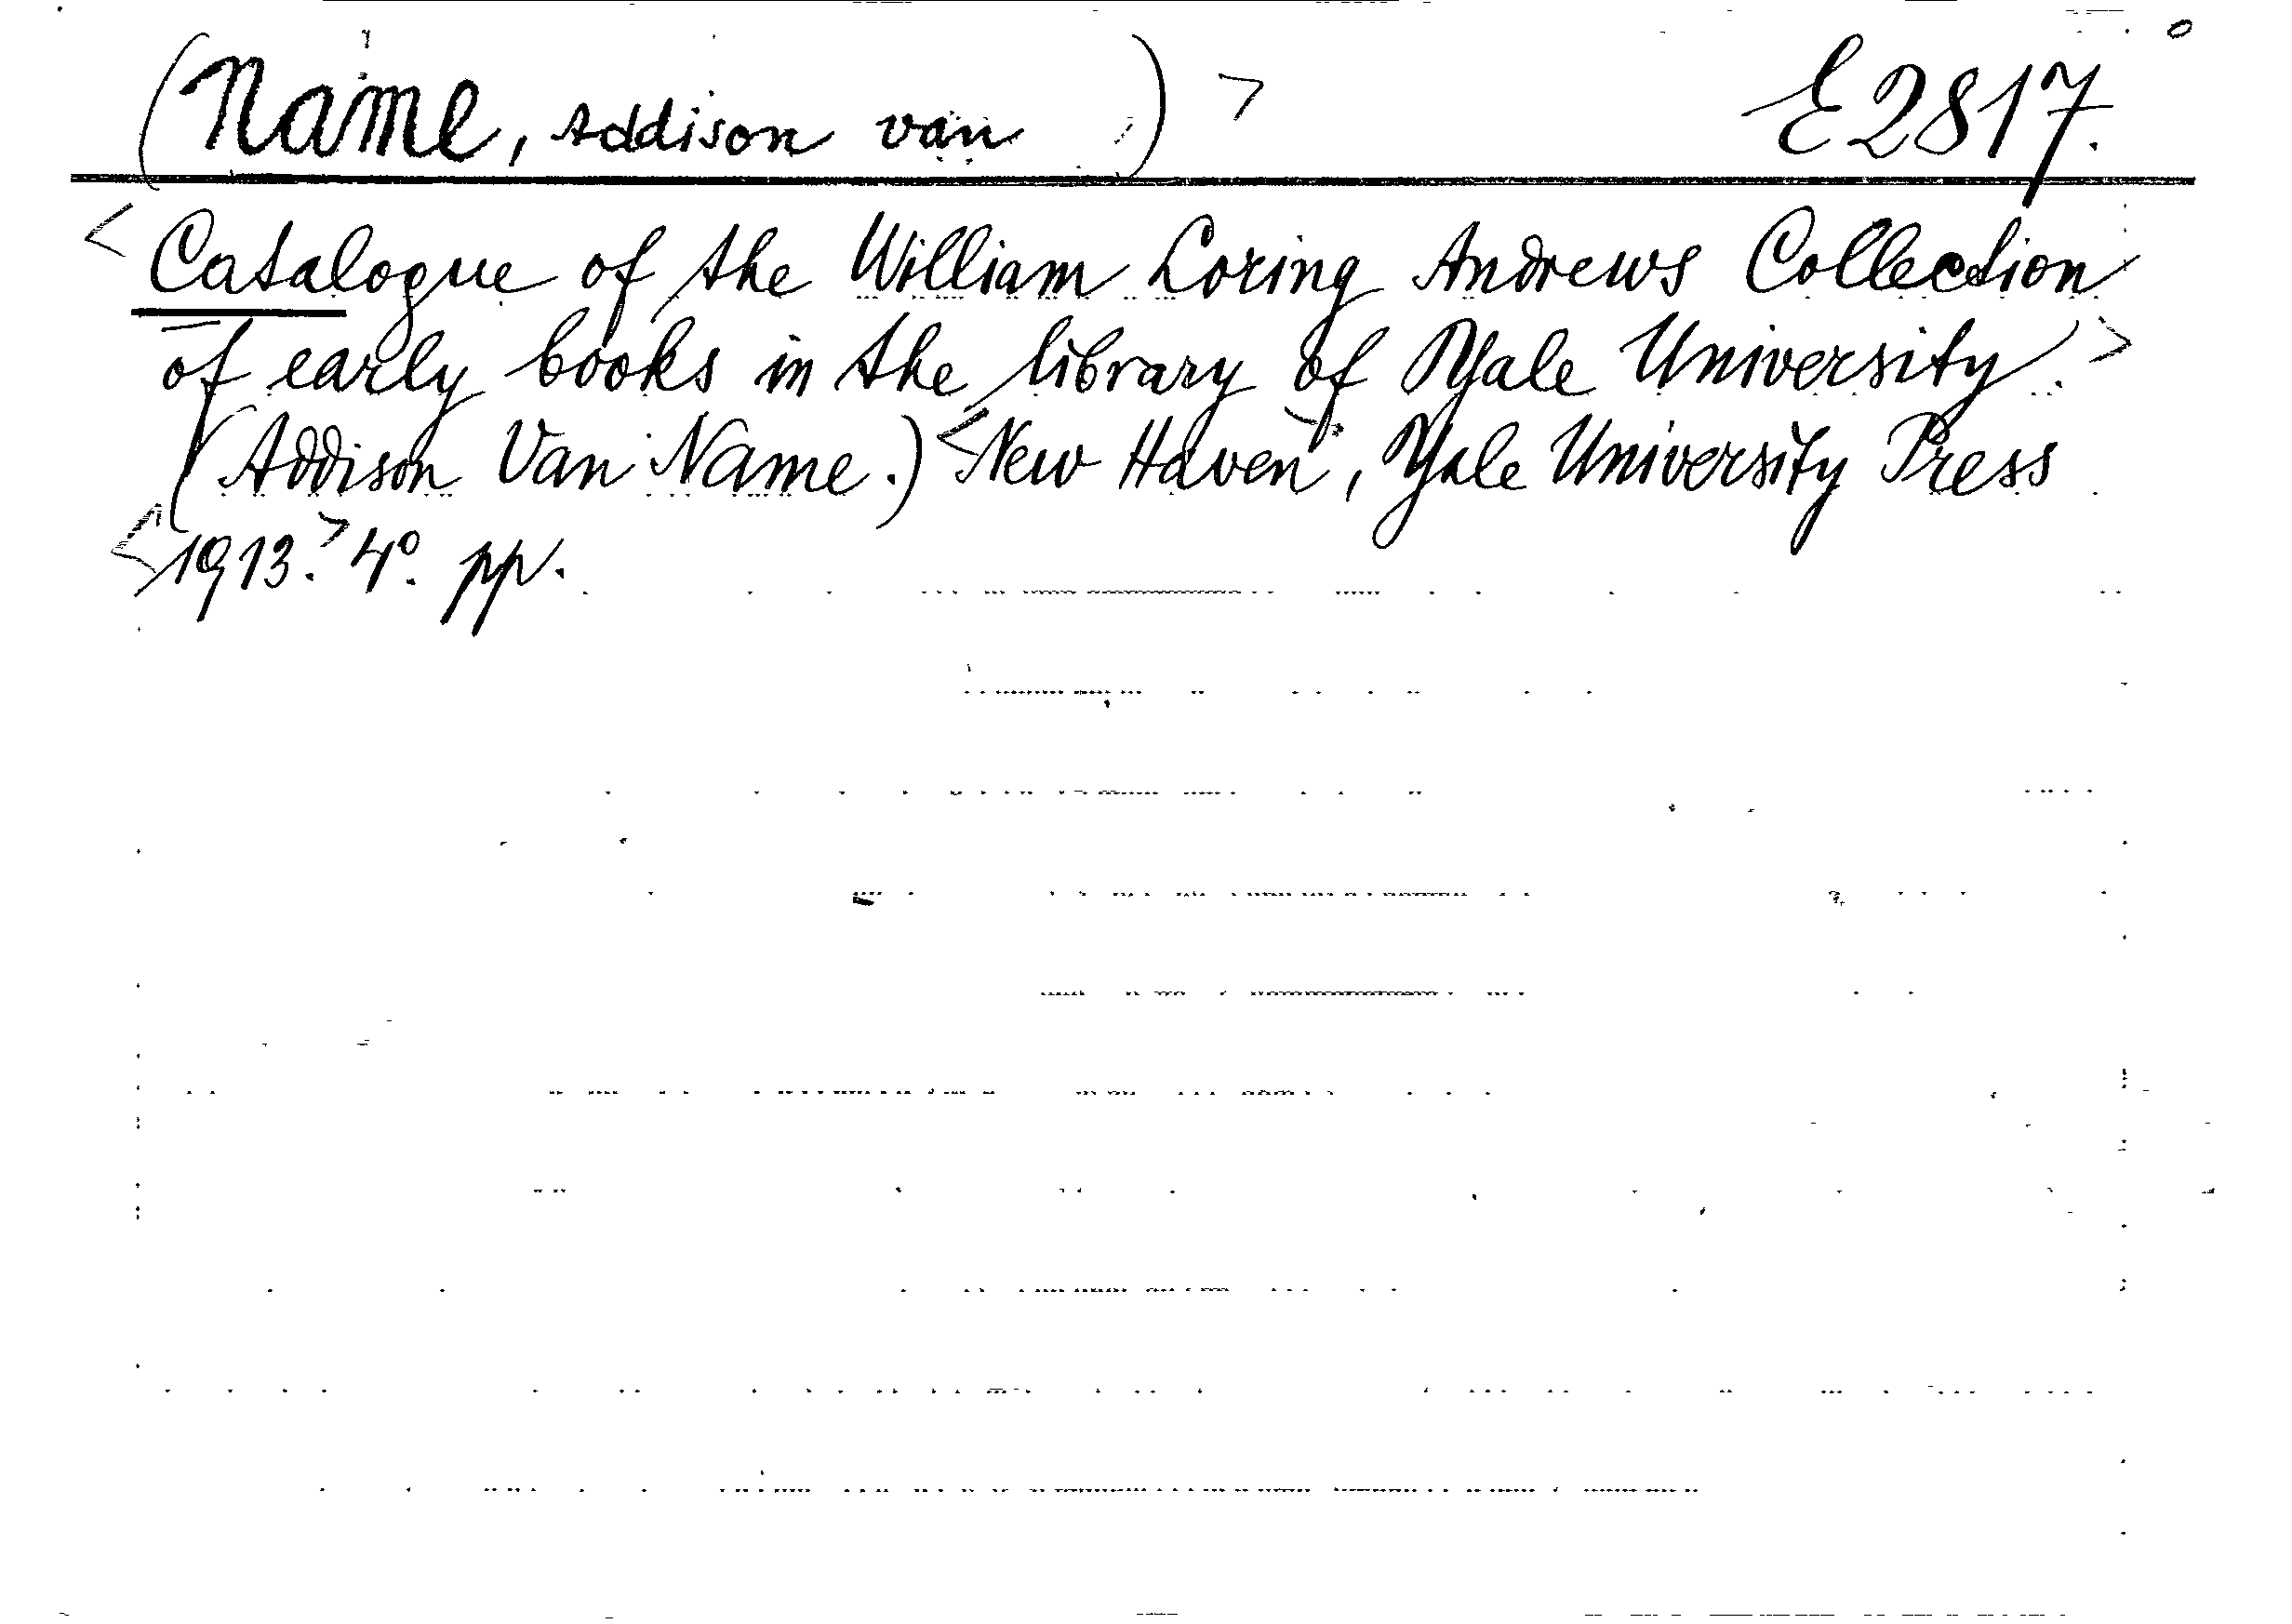 (Name, Addison van ) > E 2817.
< Catalogue of the William Loring Andrews Collection
of early books in the library of Yale University. >
(Addison Van Name.) < New Haven >, Yale University Press
< 1913. > 4° pp.